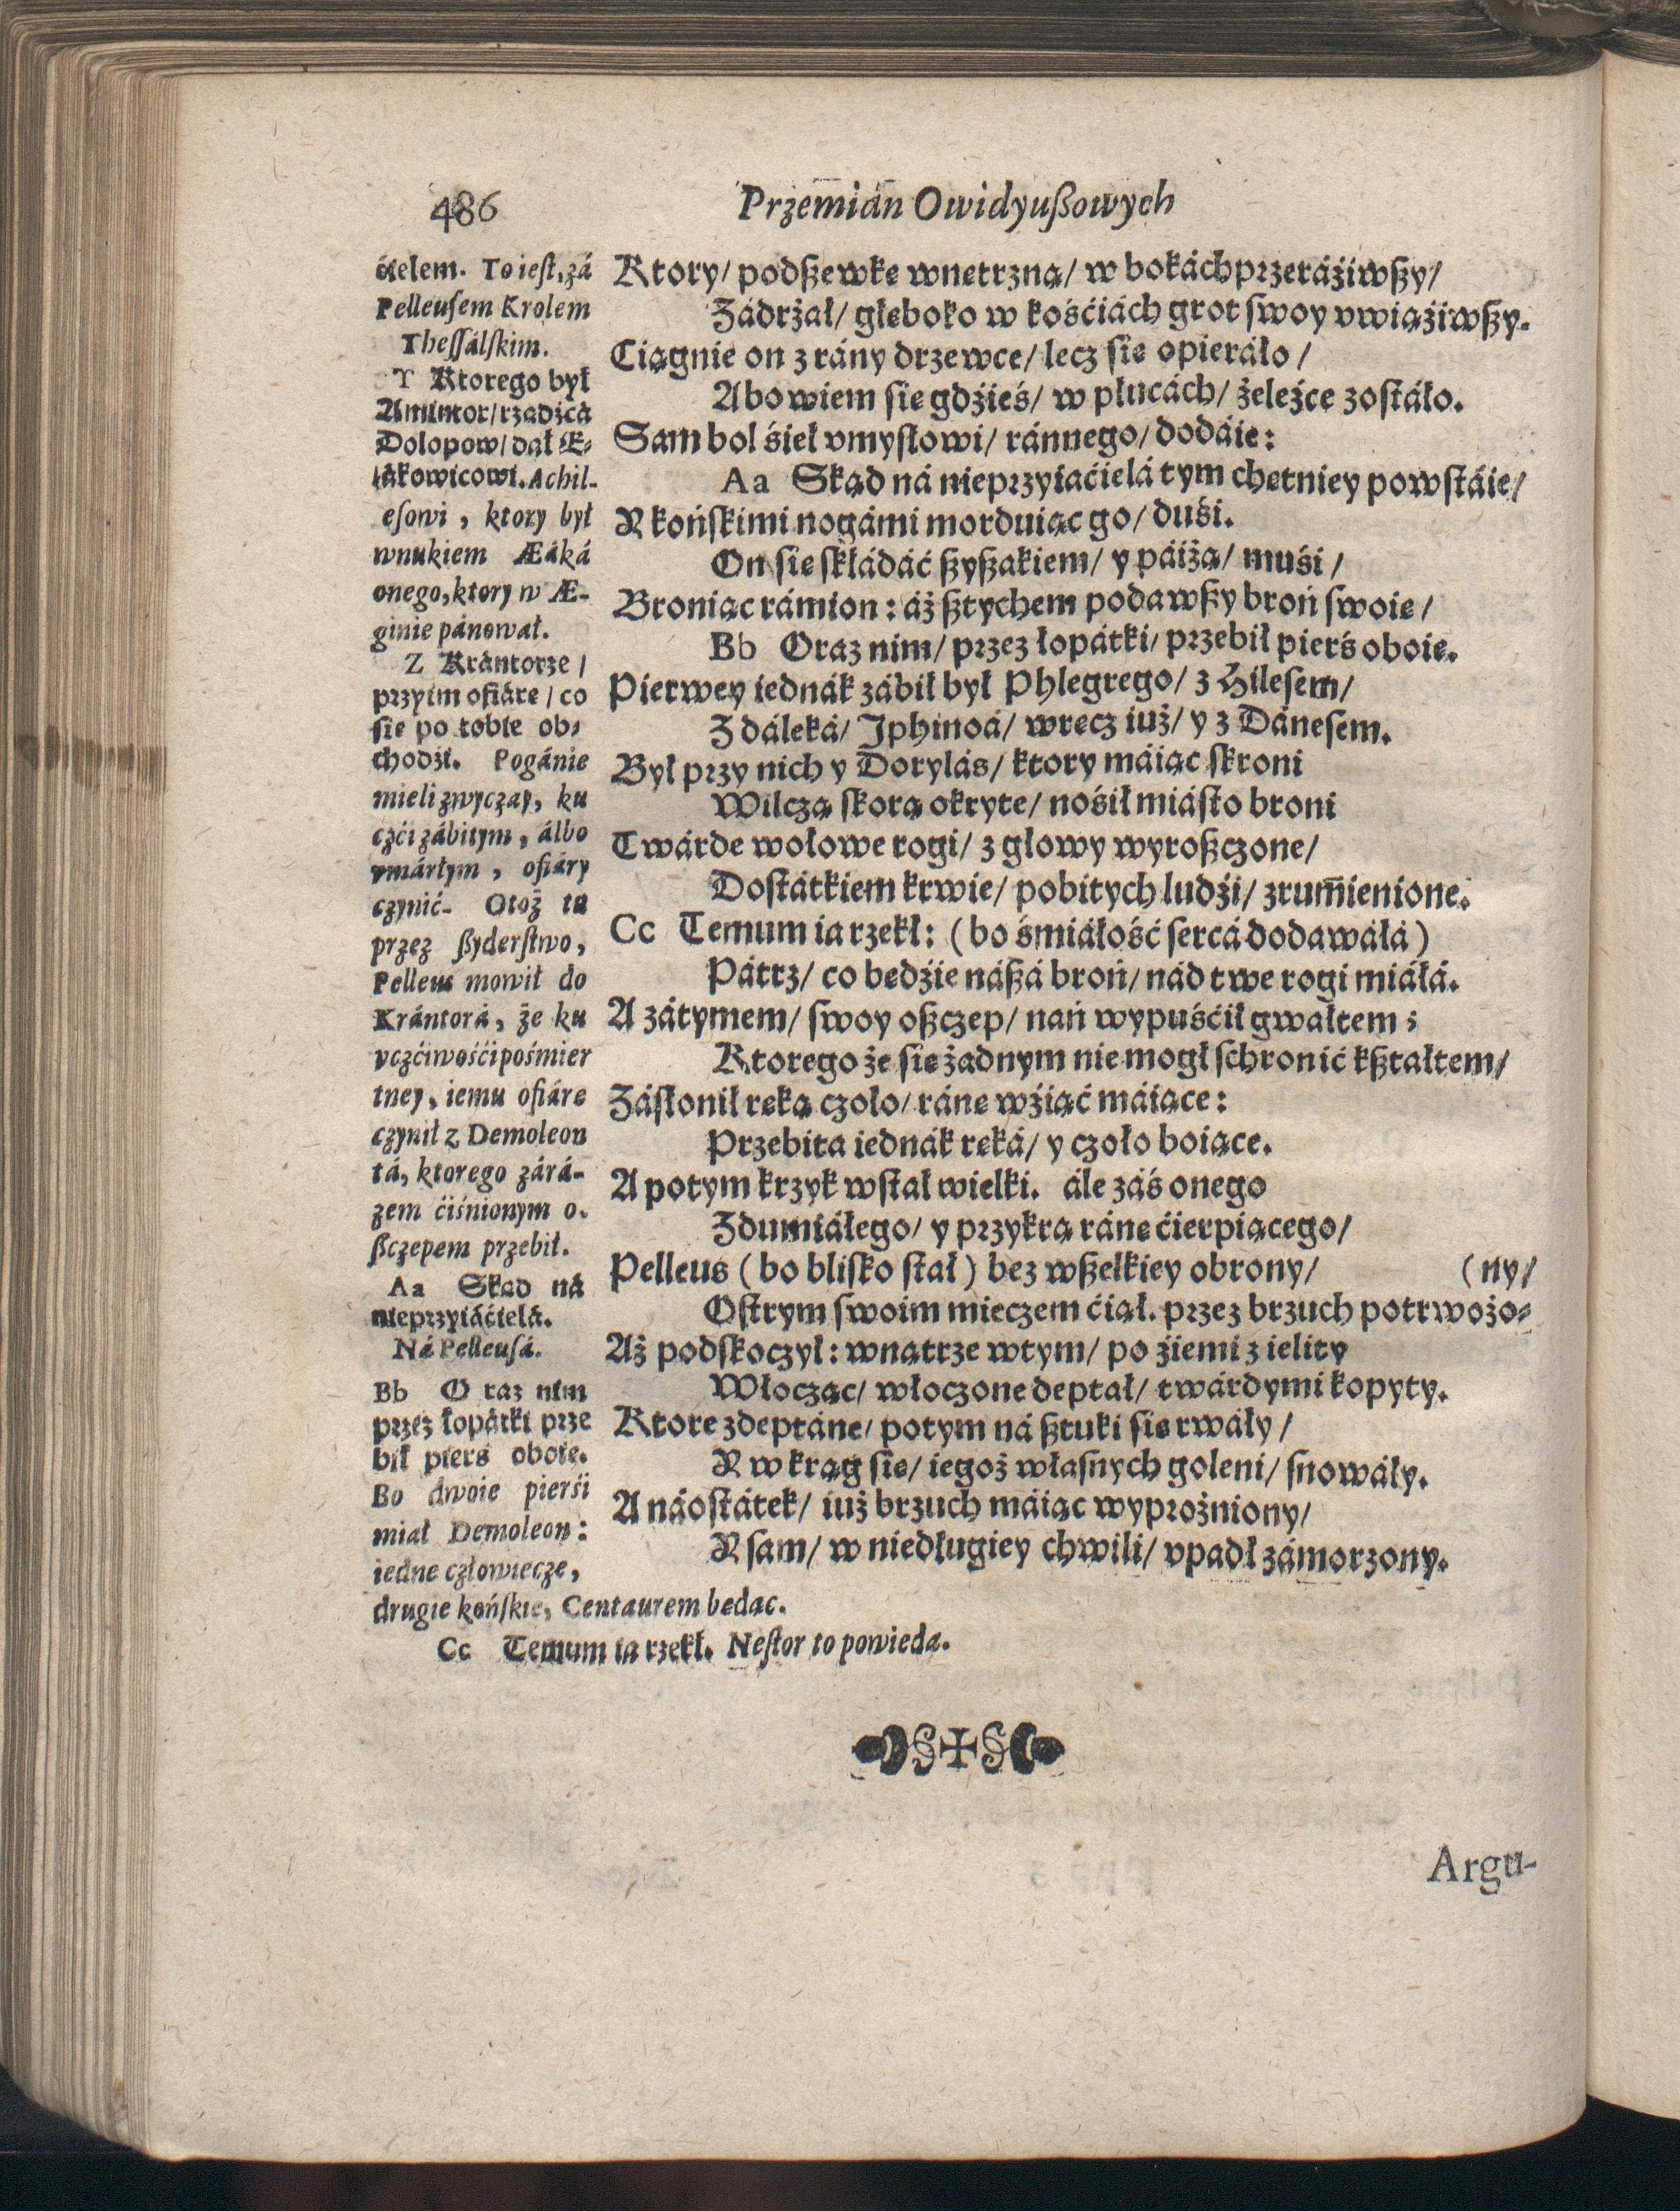 486
Przemián Owidyußowych
ćielem. To iest, zá
Pelleusem Krolem
Thessálskim.
Y Ktorego był
Amintor/ rządzcá
Dolopow/ dał Æ-
iákowicowi. Achil-
esowi, ktory był
wnukiem Æáká
onego, ktory w Æ-
ginie pánował.
Z Krántorze/
przyim ofiárę/ co
się po tobie ob-
chodźi. Pogánie
mieli zwyczay, ku
czći zábitym, álbo
vmárłym, ofiáry
czynić. Otoż tu
przez ßyderstwo,
Pelleus mowił do
Krántorá, że ku
vczćiwośći pośmier
tney, iemu ofiárę
czynił z Demoleon
tá, ktorego zárá-
zem ćiśnionym o-
ßczepem przebił.
Aa Skąd ná
nieprzyiáćielá.
Ná Pelleusá.
Bb O raz nim
przez łopátki prze
bił pierś oboię.
Bo dwoie pierśi
miał Demoleon:
iedne człowiecze,
drugie końskie, Centaurem będąc.
Cc Temum ia rzekł. Nestor to powieda.
Ktory/ podßewkę wnętrzną/ w bokách przeráźiwßy/
Zádrżał/ głęboko w kośćiách grot swoy vwiąźiwßy.
Ciągnie on z rány drzewce/ lecz się opieráło/
Abowiem się gdźieś/ w płucách/ żeleźce zostáło.
Sam bol śięł vmysłowi/ ránnego/ dodáie:
Aa Skąd ná nieprzyiaćielá tym chętniey powstáie/
Y końskimi nogámi morduiąc go/ duśi.
On się skłádáć ßyßakiem/ y páiżą/ muśi/
Broniąc rámion: áż ßtychem podawßy broń swoię/
Bb Oraz nim/ przez łopátki/ przebił pierś oboię.
Pierwey iednák zábił był Phlegrego/ z Hilesem/
Z dáleká/ Jphinoá/ wręcz iuż/ y z Dánesem.
Był przy nich y Dorylás/ ktory máiąc skroni
Wilczą skorą okryte/ nośił miásto broni
Twárde wołowe rogi/ z głowy wyroßczone/
Dostátkiem krwie/ pobitych ludźi/ zrum̃ienione.
Cc Temum ia rzekł: (bo śmiáłość sercá dodawáłá)
Pátrz/ co będźie náßá broń/ nád twe rogi miáłá.
A zátymem/ swoy oßczep/ nań wypuśćił gwałtem;
Ktorego że się żadnym nie mogł schronić kßtałtem/
Zásłonił ręką czoło/ ránę wźiąć máiące:
Przebita iednák ręká/ y czoło boiące.
A potym krzyk wstał wielki. ále záś onego
Zdumiáłego/ y przykrą ránę ćierpiącego/
Pelleus (bo blisko stał) bez wßelkiey obrony/ (ny/
Ostrym swoim mieczem ćiął. przez brzuch potrwożo-
Aż podskoczył: wnątrze wtym/ po źiemi z ielity
Włocząc/ włoczone deptał/ twárdymi kopyty.
Ktore zdeptáne/ potym ná ßtuki się rwáły/
Y w krąg się/ iegoż własnych goleni/ snowáły.
A náostátek/ iuż brzuch máiąc wyprożniony/
Y sam/ w niedługiey chwili/ vpadł zámorzony.
Argu-